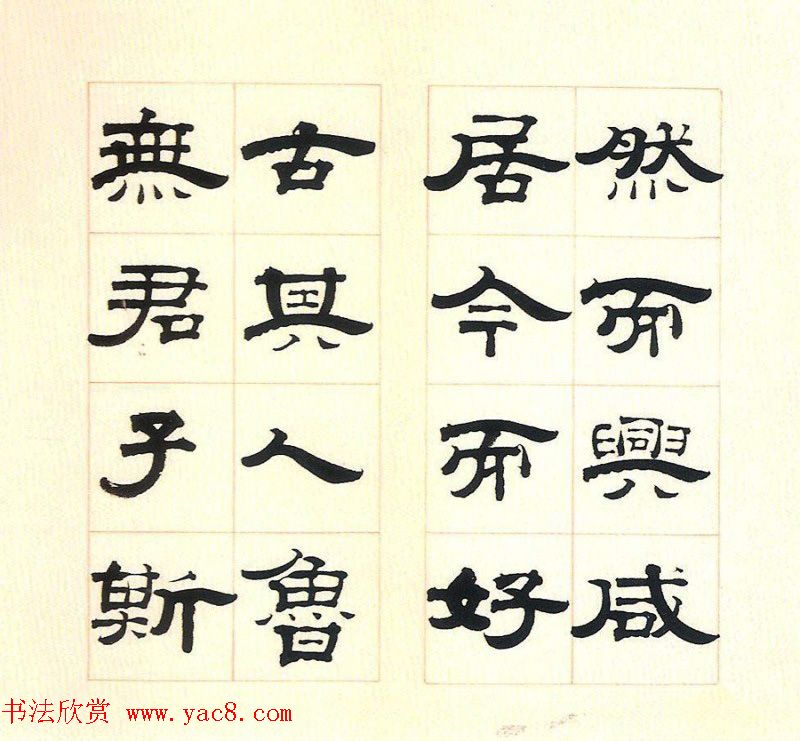 然而興咸
居今而好
古其人魯
無君子斯
书法欣赏 www.yac8.com